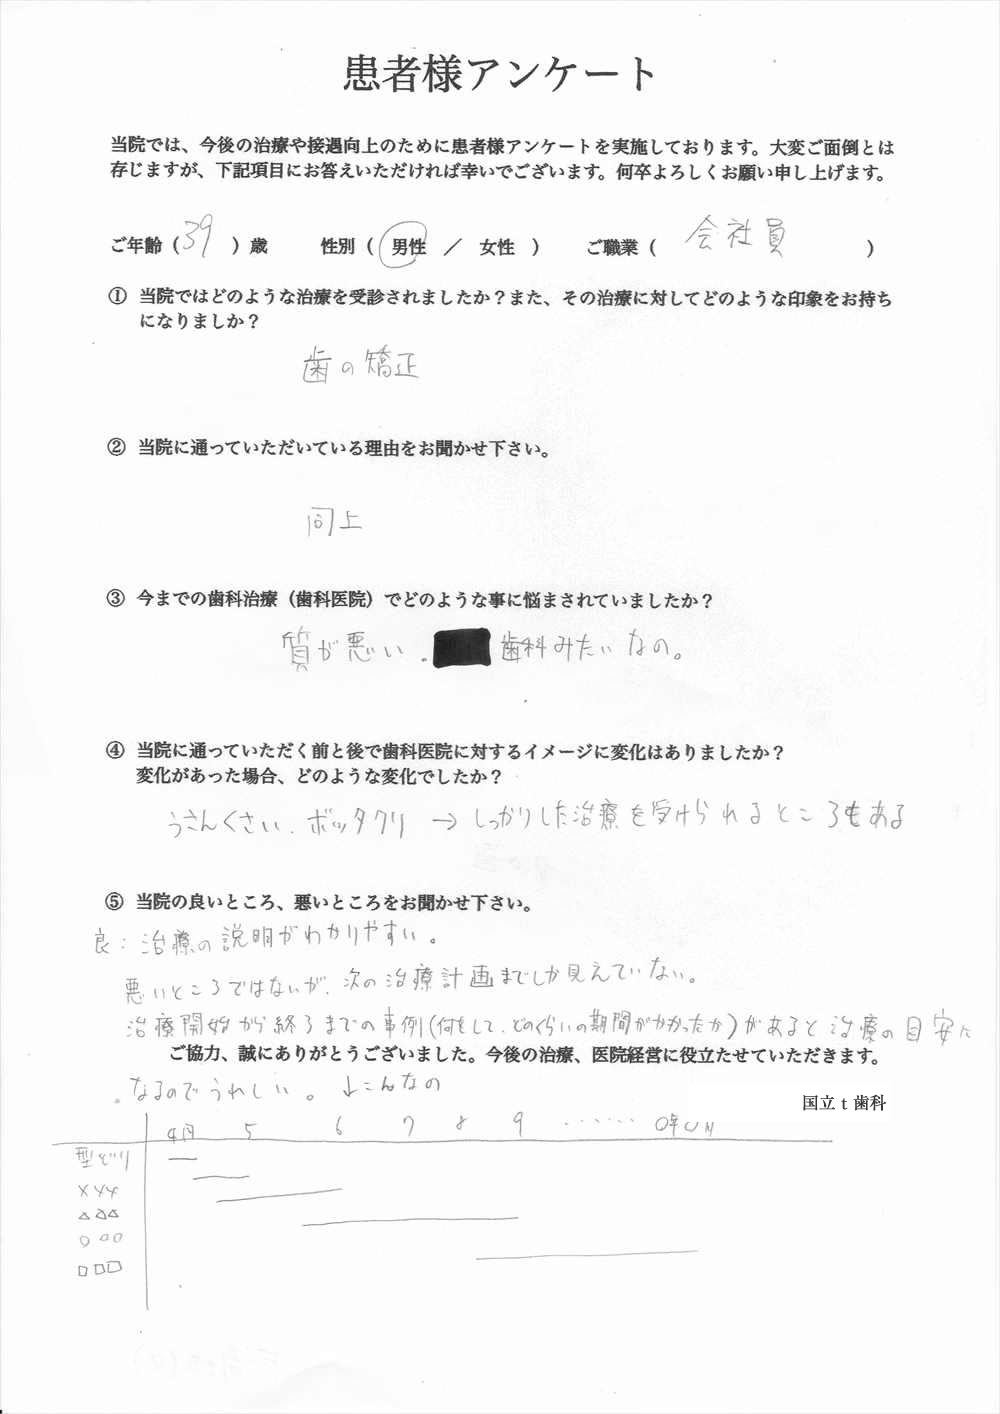 患者様アンケート
当院では、今後の治療や接遇向上のために患者様アンケートを実施しております。大変ご面倒とは
存じますが、下記項目にお答えいただければ幸いでございます。何卒よろしくお願い申し上げます。
ご年齢（39）歳　性別（男性／女性）　ご職業（会社員）
① 当院ではどのような治療を受診されましたか？また、その治療に対してどのような印象をお持ち
になりましか？
歯の矯正
② 当院に通っていただいている理由をお聞かせ下さい。
同上
③ 今までの歯科治療（歯科医院）でどのような事に悩まされていましたか？
質が悪い. 歯科みたいなの。
④ 当院に通っていただく前と後で歯科医院に対するイメージに変化はありましたか？
変化があった場合、どのような変化でしたか？
うさんくさい、ボッタクリ → しっかりした治療を受けられるところもある
⑤ 当院の良いところ、悪いところをお聞かせ下さい。
良：治療の説明がわかりやすい。
悪いところではないが、次の治療計画までしか見えていない。
治療開始から終了までの事例(何をして、どのくらいの期間がかかったか)があると治療の目安に
ご協力、誠にありがとうございました。今後の治療、医院経営に役立たせていただきます。
なるのでうれしい。 ↓こんなの
国立ｔ歯科
4月 5 6 7 8 9 ‥‥‥ ○年○月
型どり
×××
△△△
○○○
□□□